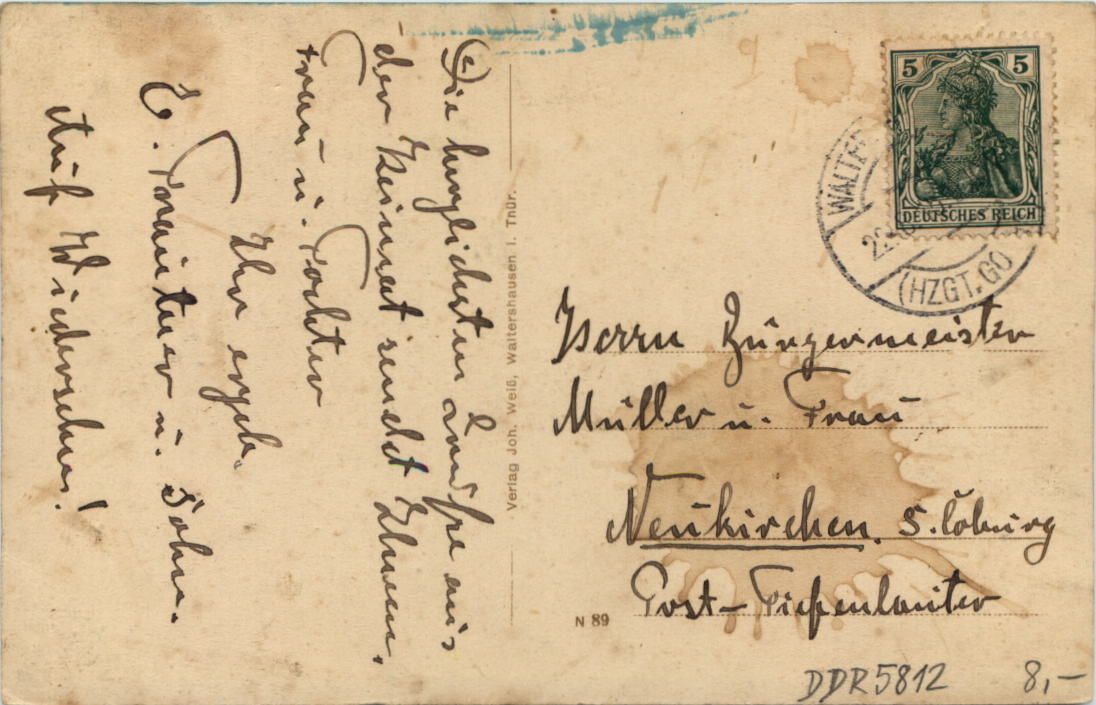 Die herzlichsten Grüße aus
der Heimat sendet Ihnen,
Frau u. Tochter
Ihr ergeb.
E. u. Sohn.
Auf Wiedersehen!
Verlag Joh. Weiß, Waltershausen i. Thür.
N 89
5 5
DEUTSCHES REICH
WALTER
22
(HZGT. GO
Herrn Bürgermeister
Müller u. Frau
Neukirchen
Post-Tiefenlauter
DDR 5812 8,-